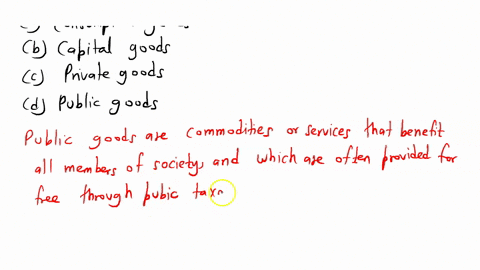 (b) Capital goods
(c) Private goods
(d) Public goods
Public goods are commodities or services that benefit
all members of society, and which are often provided for
free through pubic tax